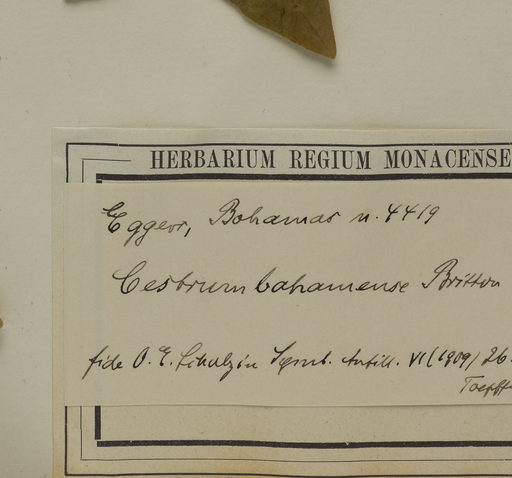 HERBARIUM REGIUM MONACENSE
Eggers, Bahamas n. 4419
Cestrum bahamense Britton
fide O. E. Schulz in Symb. Antill. VI (1909) 26
Toepffe